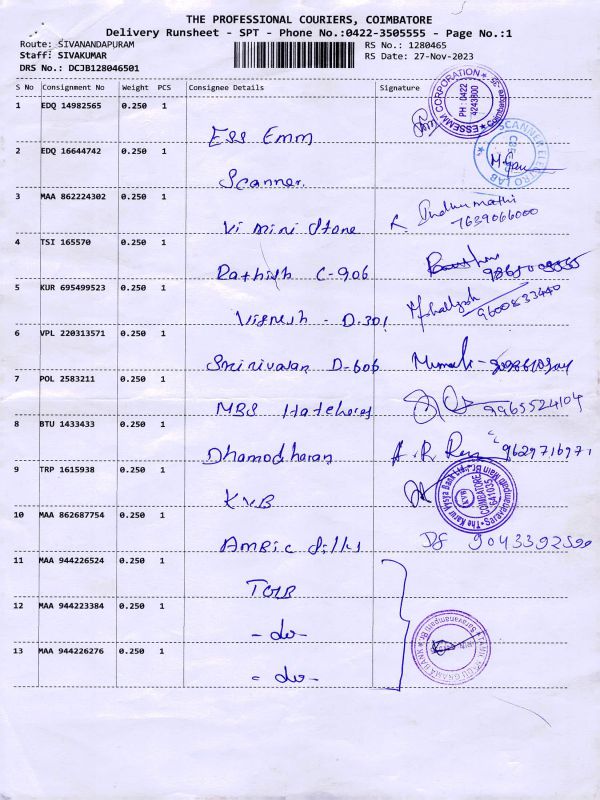 THE PROFESSIONAL COURIERS, COIMBATORE
Delivery Runsheet - SPT - Phone No.:0422-3505555 - Page No.:1
Route: SIVANANDAPURAM
Staff: SIVAKUMAR
DRS No.: DCJB128046501
RS No.: 1280465
RS Date: 27-Nov-2023
S No Consignment No Weight PCS Consignee Details Signature
1 EDQ 14982565 0.250 1
Ess Emm
ESSEMM CORPORATION
PH 0422
4243800
2 EDQ 16644742 0.250 1
Scanner
SCANNER ELECTRO LAB
3 MAA 862224302 0.250 1
Vi mini Stone
Indhumathi
7639066000
4 TSI 165570 0.250 1
Rathish C-906
5 KUR 695499523 0.250 1
Vignesh - D.301
9600833440
6 VPL 220313571 0.250 1
Srinivasan D-606
7 POL 2583211 0.250 1
MBS Hatcheries
9965524104
8 BTU 1433433 0.250 1
Dhamodharan
A. R. 9629716971
9 TRP 1615938 0.250 1
KVB
The Karur Vysya Bank Ltd.
COIMBATORE
641035
10 MAA 862687754 0.250 1
Ambic
9043392590
11 MAA 944226524 0.250 1
TGB
12 MAA 944223384 0.250 1
- do -
13 MAA 944226276 0.250 1
- do -